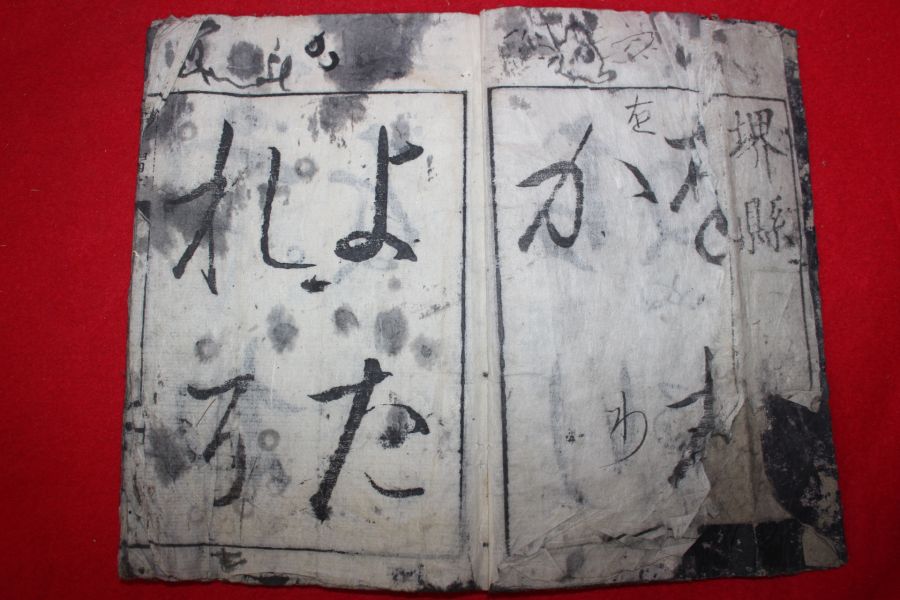 堺縣
を わ
を わ
か
よ た
れ そ